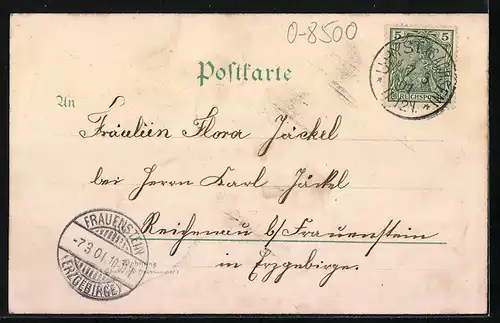 0-8500
5 5
REICHSPOST
Postkarte
An
Fräulein Flora Jäckel
bei Herrn Karl Jäckel
Reichenau b/Frauenstein
in Erzgebirge.
FRAUENSTEIN
-7.3.01.10-
(ERZGEBIRGE)
Wohnung